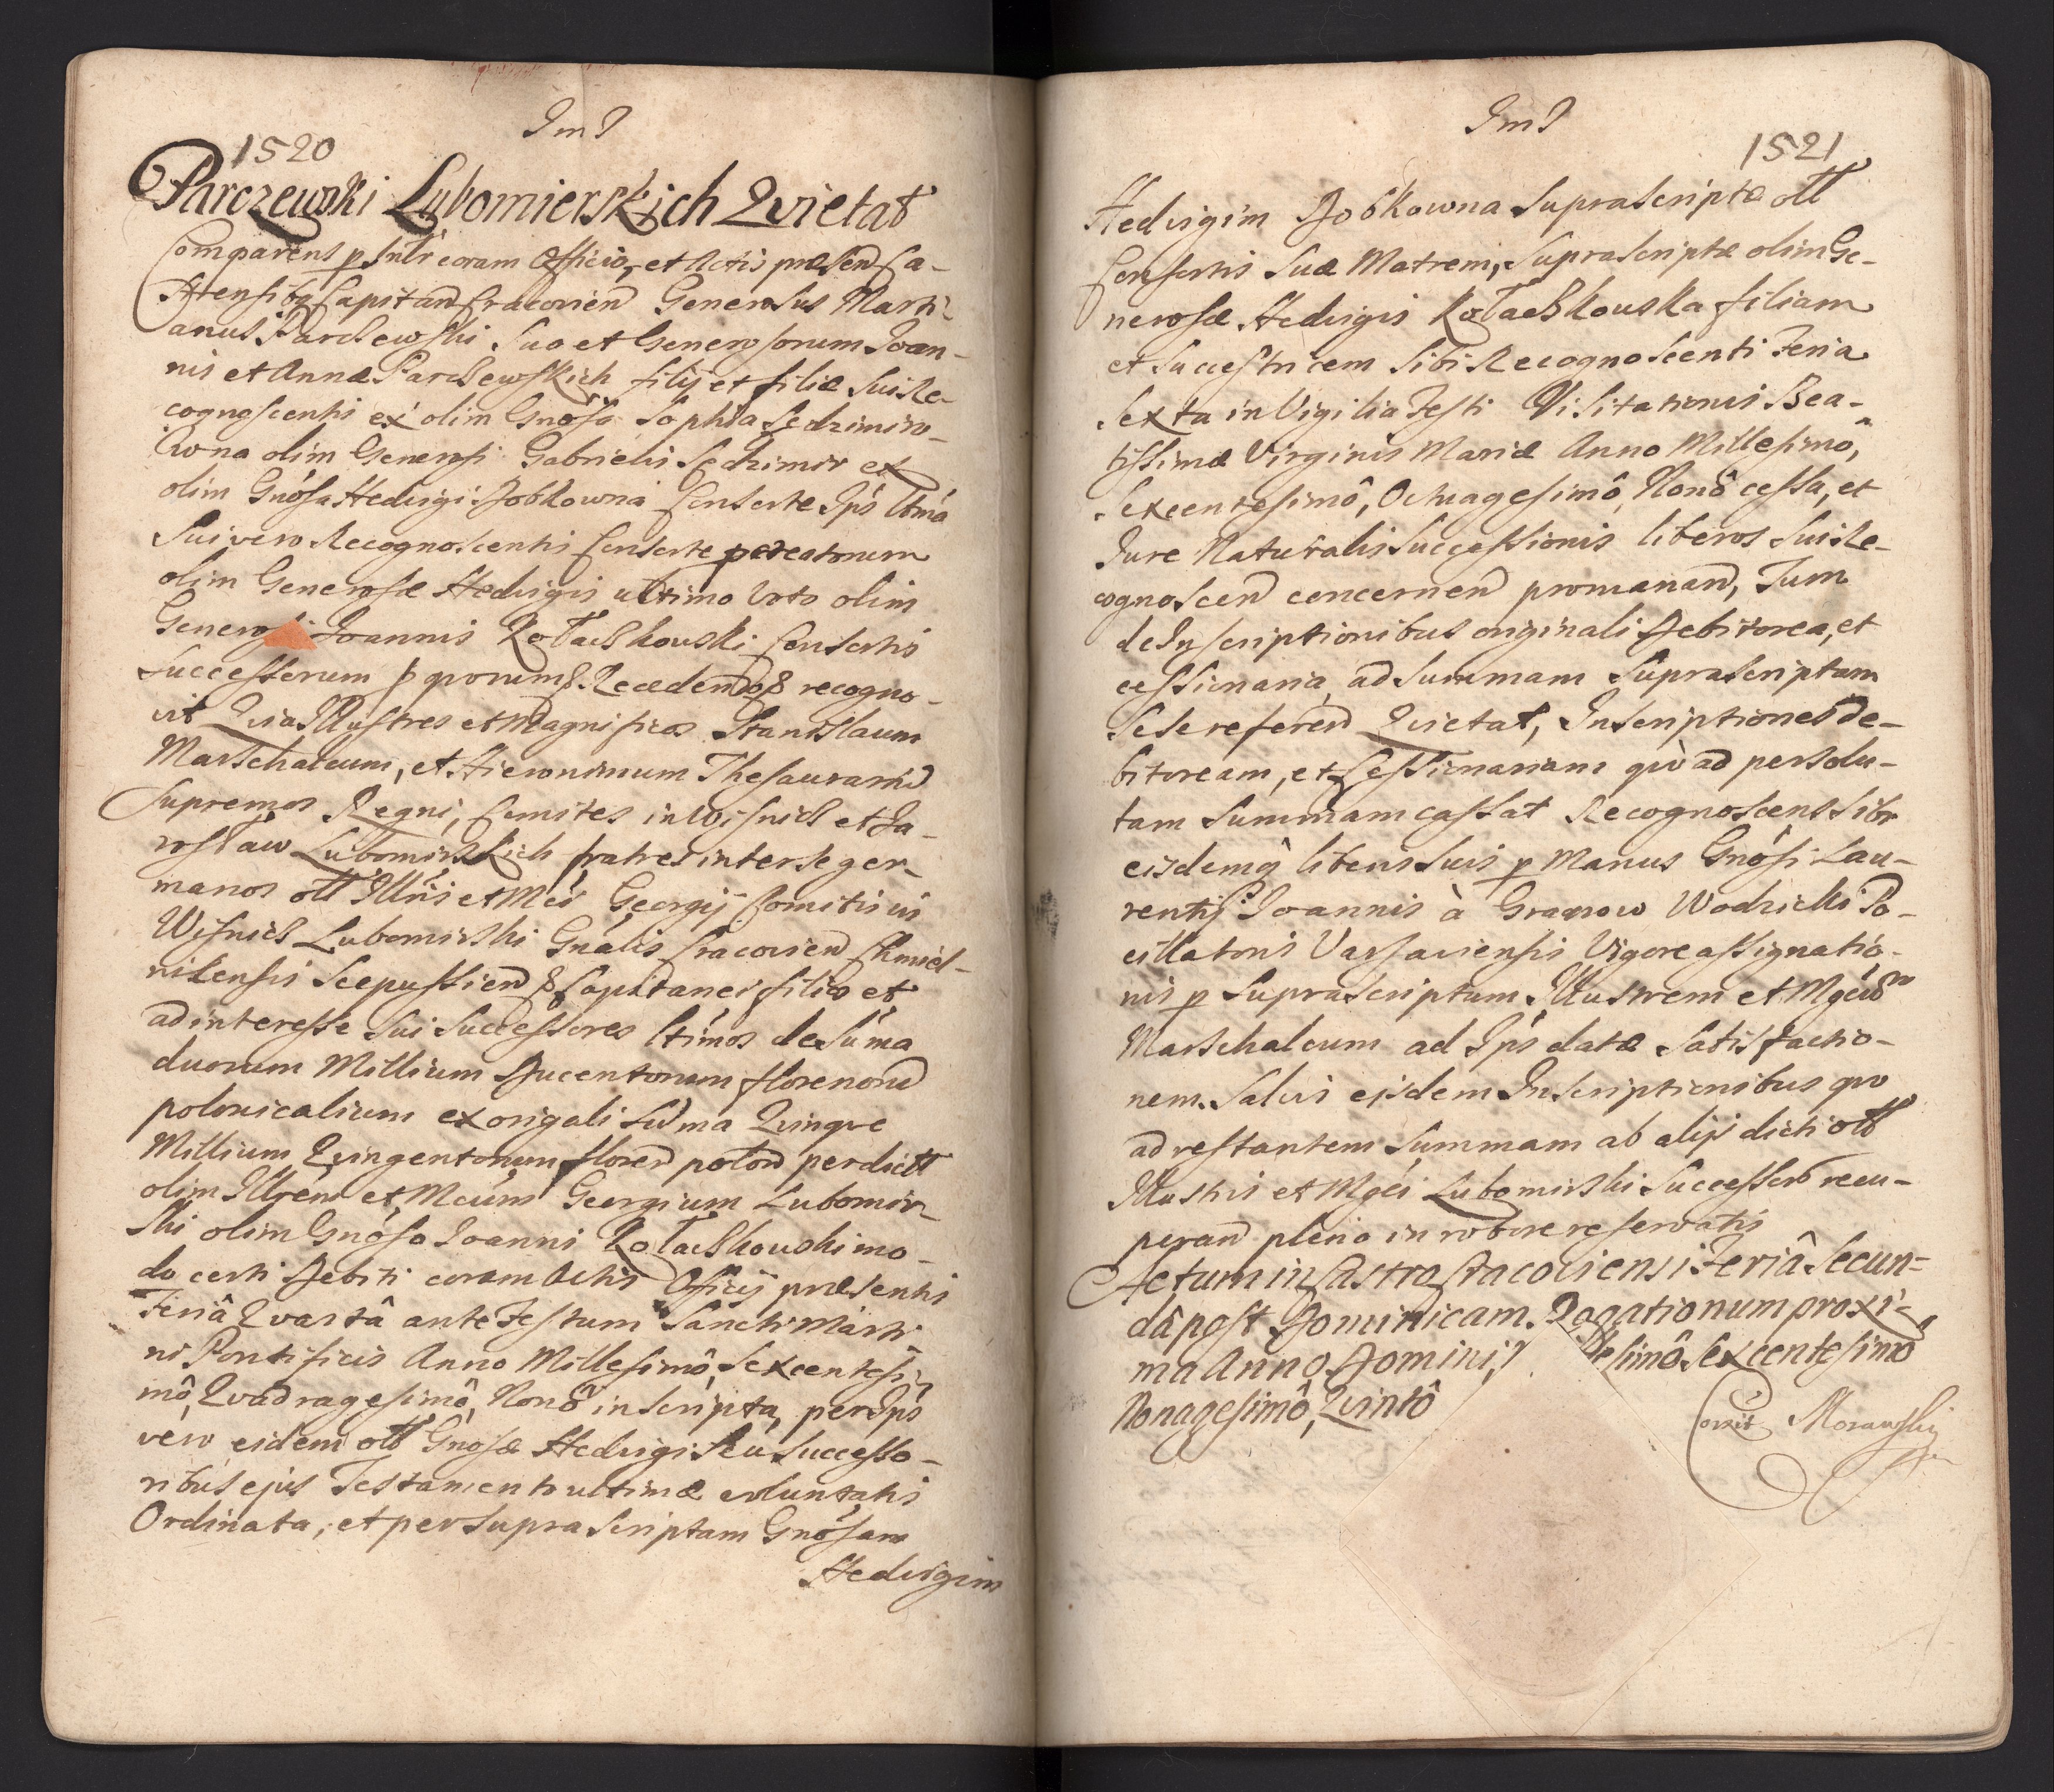 JmJ
1520
Parczewski Lubomierskich Qvietat
Comparens p Sntr coram Officio, et Actis præsen Ca-
strensibq Capitan Cracovien Generosus Marti-
anus Parchewski Suo et Generosorum Joan-
nis et Annæ Parchewskich filij et filiæ Sui Re-
cognoscentis ex olim Gnosa Sophia Sedzimiro-
wna olim Generosi Gabrielis Sedzimir ex
olim Gnósa Hedvigi Dobkowna Consorte Ips ltma
Sui vero Recognoscentis Consorte procreatorum
olim Generosæ Hedvigis ultimo Voto olim
Generosi Joannis Kotaczkowski Consortis
Successorum p qvorum & Recedendo & recogno-
vit Qvia Illustres et Magnificos Stanislaum
Marschalcum, et Hieronimum Thesaurariu
Supremos Regni, Comites in Wisnicz et Ja-
rosław Lubomirskich fratres inter se ger-
manos olt Illris et Mci Georgij Comitis in
Wisnicz Lubomirski Gnalis Cracovien Chmiel-
nicensis Scepussien & Capitanei filios et
ad interesse Sui Successores ltimos de Suma
duorum Millium Ducentorum florenoru
polonicalium ex origali Suma Qvinqve
Millium Qvingentorum floren polon per dictt
olim Illrem et Mcum Georgium Lubomir-
ski olim Gnoso Joanni Kotaczkowski mo-
do certi Debiti coram Actis Officij præsentis
Feriâ Qvartâ ante Festum Sancti Marti
ni Pontificis Anno Millesimô, Sexcentesi-
mô, Qvadragesimô, Nonô inscripta, per Ips
vero eidem olt Gnosæ Hedvigi Seu Successo-
ribus ejus Testamento ultimæ voluntatis
Ordinata, et per supra scriptam Gnosam
Hedvigim
JmJ
1521
Hedvigim Dobkowna Suprascriptæ olt
Consortis Suæ Matrem, Suprascriptæ olim Ge-
nerosæ Hedvigis Kotaczkowska filiam
et Successtricem Sibi Recognoscenti Feria
Sexta in Vigilia Festi Visitationis Bea-
tissimæ Virginis Mariæ Anno Millesimô,
Sexcentesimô, Octuagesimô, Nonô cessa, et
Jure Naturalis Successionis liberos Sui Re-
cognoscen concernen promanan, Tum
de Inscriptionibus originali Debitorea, et
cessionaria, ad Summam Suprascriptam
Sese referen Qvietat, Inscriptiones de-
bitoream, et Cessionariam qvò ad persolu-
tam Summam cassat Recognoscens Sibi
eisdemq liberis Suis p Manus Gnosi Lau-
rentij Joannis à Granow Wodzicki Po-
cillatoris Varsaviensis Vigore assignatio-
nis p Suprascriptum Illustrem et Mgcum
Marschalcum ad Ips datæ Satisfactio-
nem. Salvis eisdem Inscriptionibus qvo
ad restantem Summam ab alijs dicti olt
Illustris et Mgci Lubomirski Successorb recu-
peran pleno in robore reservatis
Actum in Castro Cracoviensi Feriâ Secun-
dâ post Dominicam Rogationum proxi-
ma Anno Domini, lesimô Sexcentesimo
Nonagesimô, Qvintô
Corrit Morawski